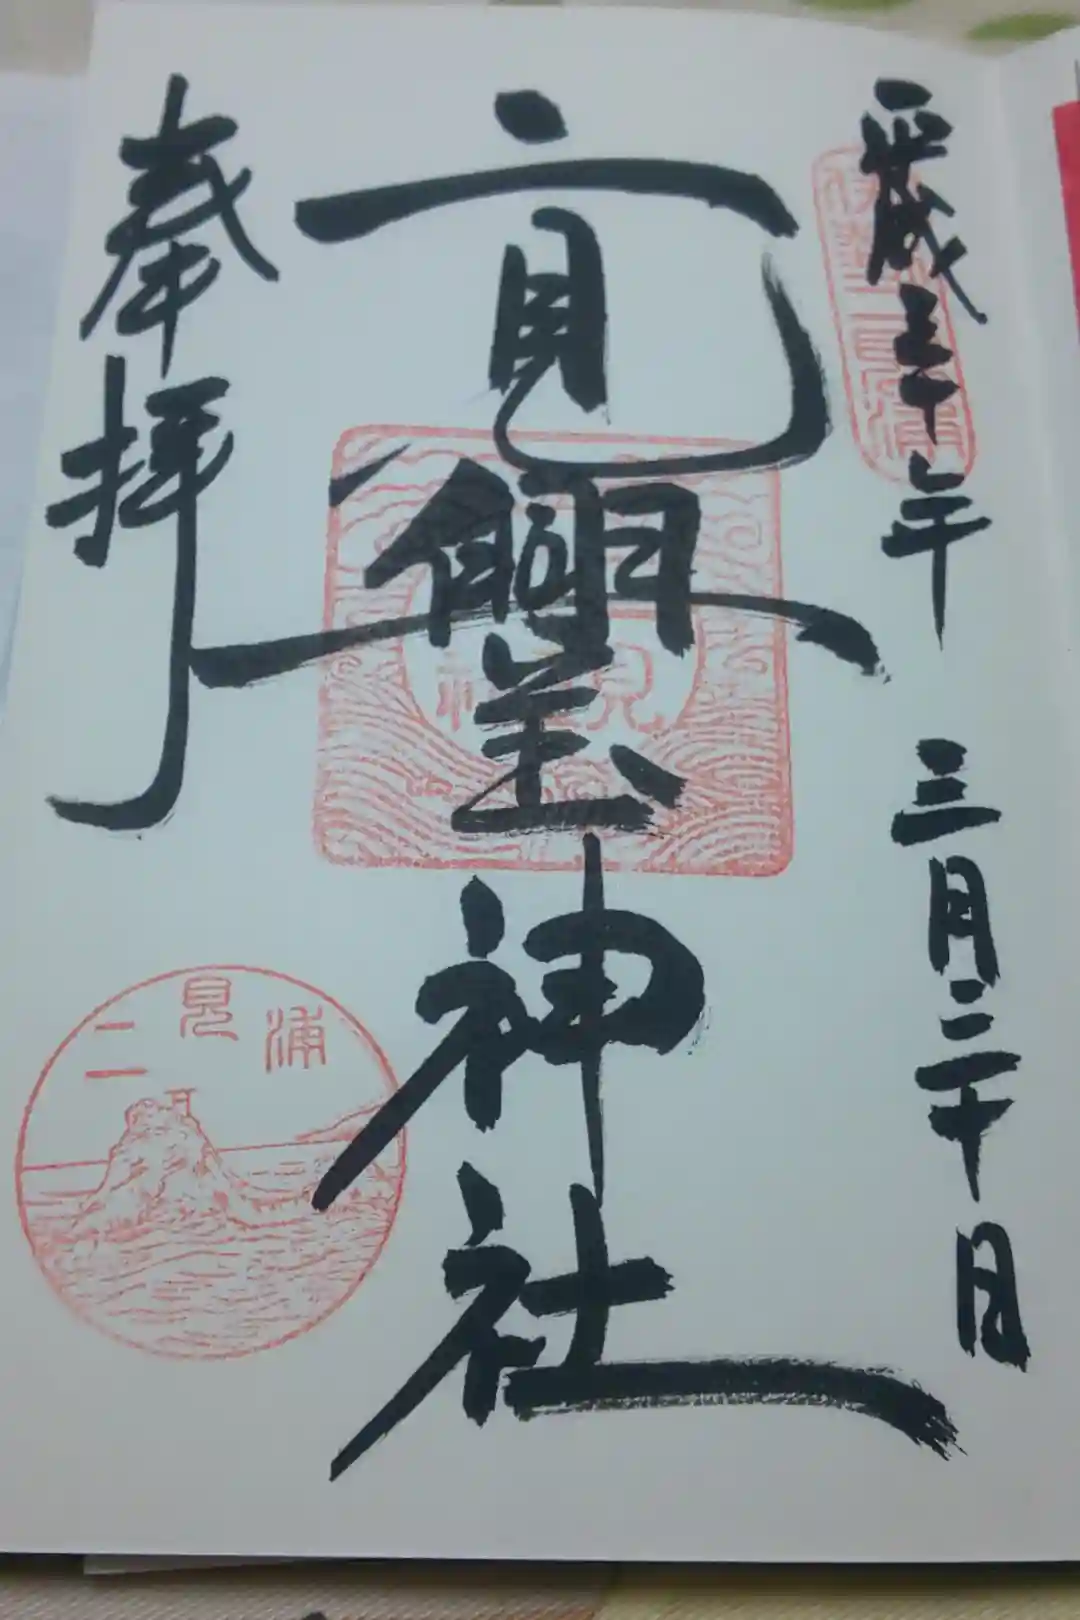 平成三十年 三月二十日
二見興玉神社
奉拝
二見浦